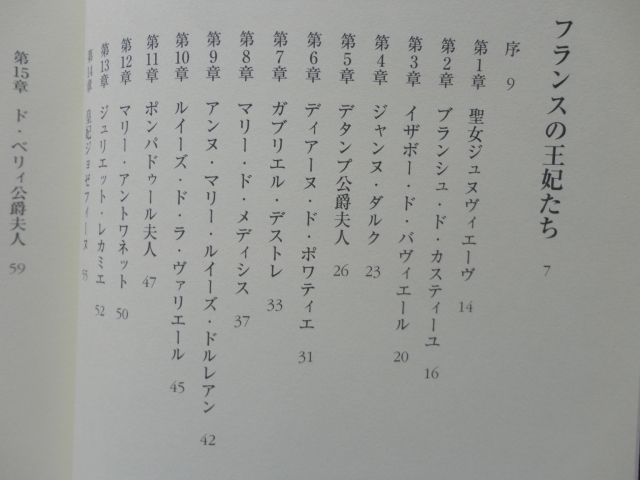 フランスの王妃たち 7
序 9
第1章 聖女ジュヌヴィエーヴ 14
第2章 ブランシュ・ド・カスティーユ 16
第3章 イザボー・ド・バヴィエール 20
第4章 ジャンヌ・ダルク 23
第5章 デタンプ公爵夫人 26
第6章 ディアーヌ・ド・ポワティエ 31
第7章 ガブリエル・デストレ 33
第8章 マリー・ド・メディシス 37
第9章 アンヌ・マリー・ルイーズ・ドルレアン 42
第10章 ルイーズ・ド・ラ・ヴァリエール 45
第11章 ポンパドゥール夫人 47
第12章 マリー・アントワネット 50
第13章 ジュリエット・レカミエ 52
第14章 皇妃ジョゼフィーヌ
第15章 ド・ベリィ公爵夫人 59